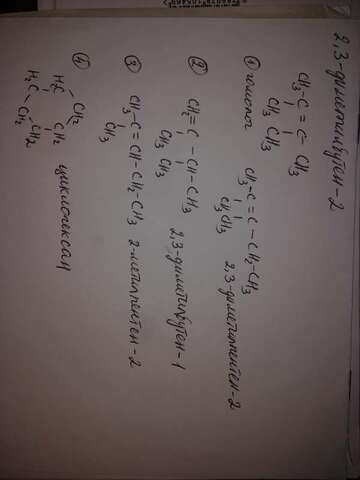 2,3-диметилбутен-2
CH₃-C = C-CH₃
CH₃ CH₃
① гомолог
CH₃-C = C-CH₂-CH₃
CH₃ CH₃
2,3-диметилпентен-2
② CH₂=C - CH-CH₃
CH₃ CH₃
2,3-диметилбутен-1
③ CH₃-C = CH-CH₂-CH₃ 2-метилпентен-2
CH₃
④
CH₂
H₂C CH₂
H₂C CH₂
CH₂
циклогексан